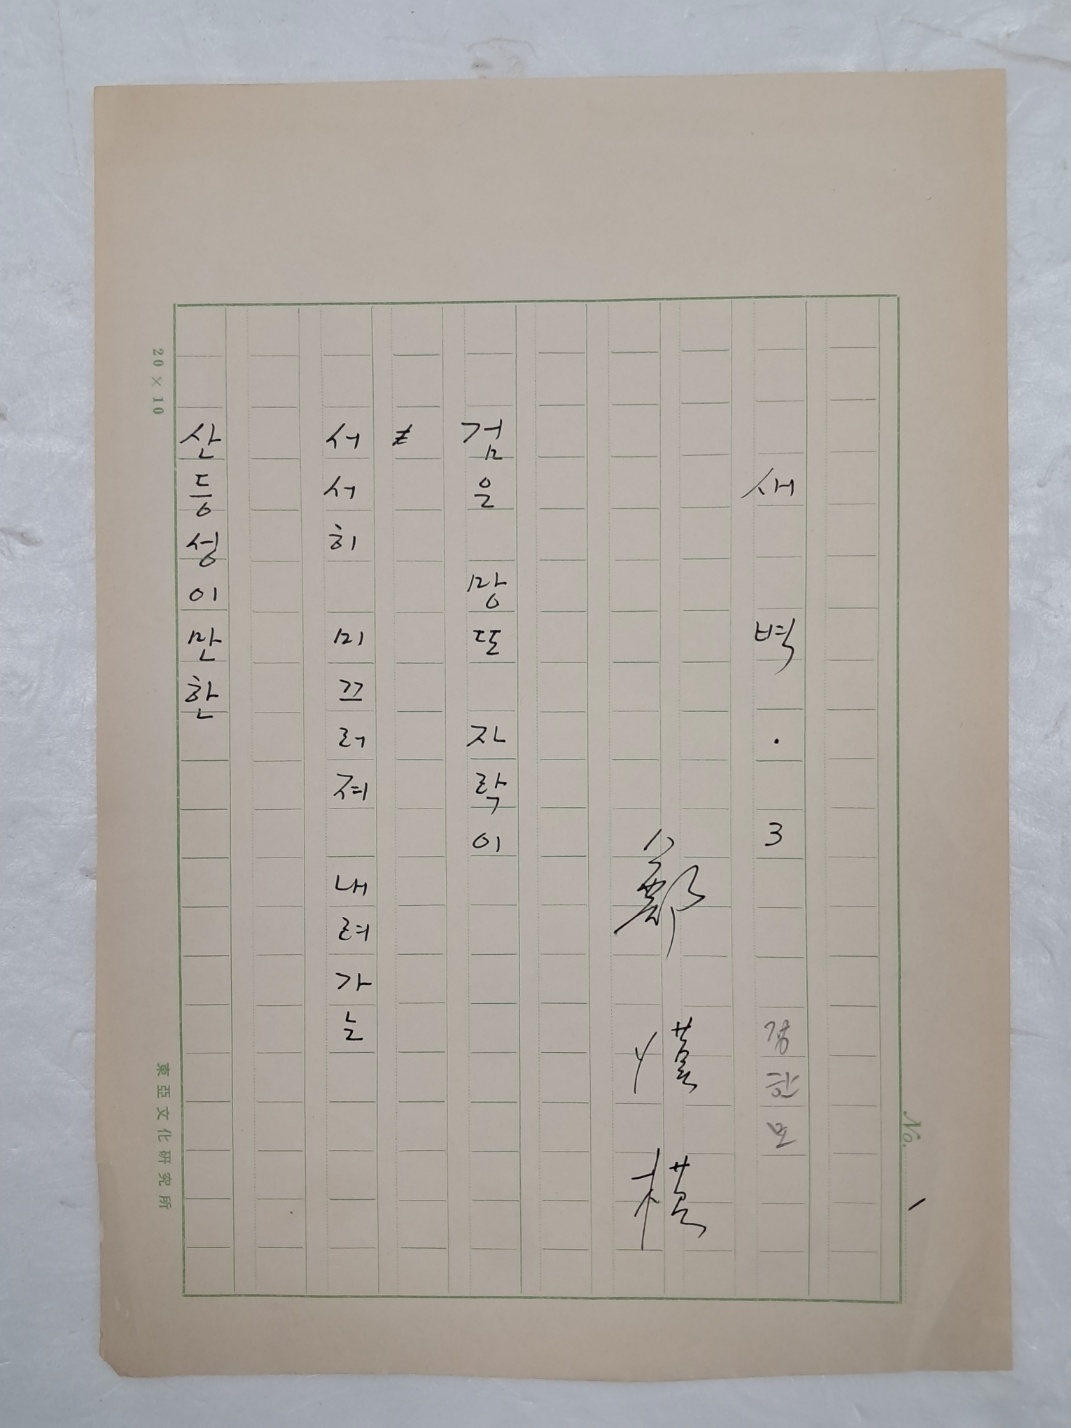 No. 1
새벽 · 3
정한모
鄭漢模
검은 망또 자락이
서서히 미끄러져 내려가는
산등성이만한
20×10
東亞文化研究所